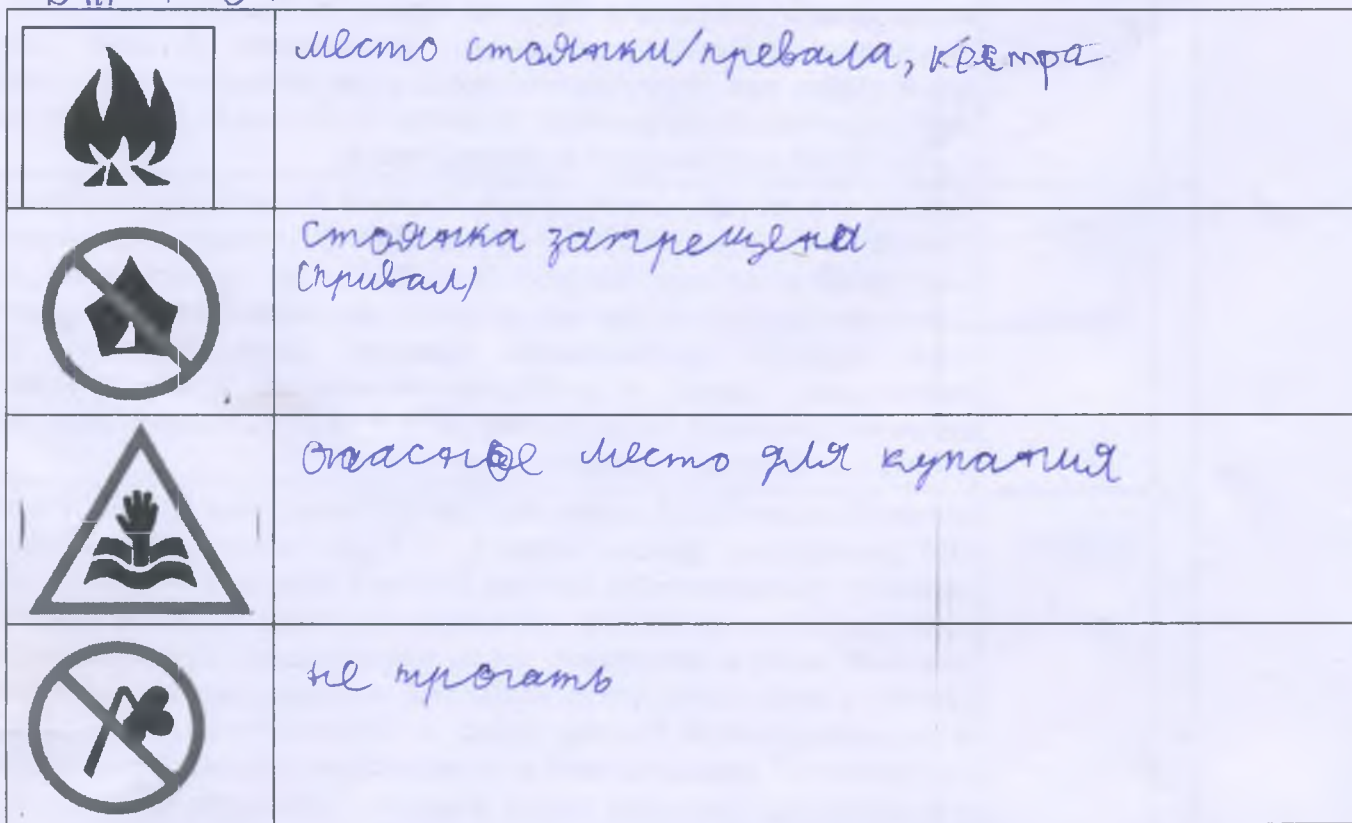 место стоянки/превала, костра
стоянка запрещена
(привал)
опасное место для купания
не трогать